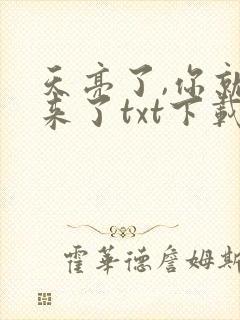 天亮了,你就
来了txt下载
霍華德詹姆斯